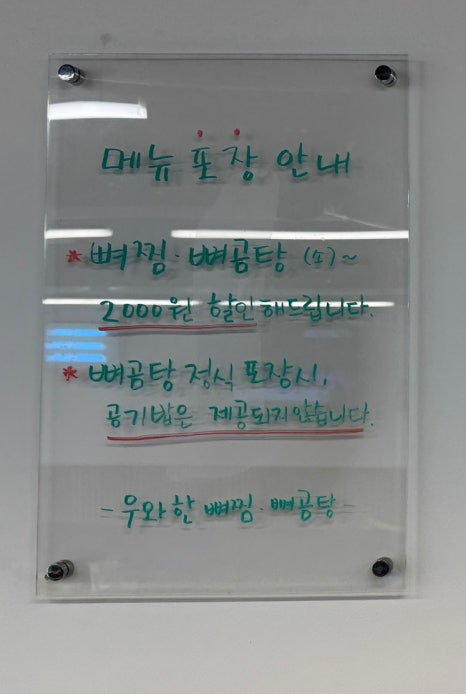 메뉴 포장 안내
* 뼈찜·뼈곰탕 (소)~
2000원 할인해드립니다.
* 뼈곰탕 정식 포장시,
공기밥은 제공되지않습니다.
- 우와한 뼈찜·뼈곰탕 -